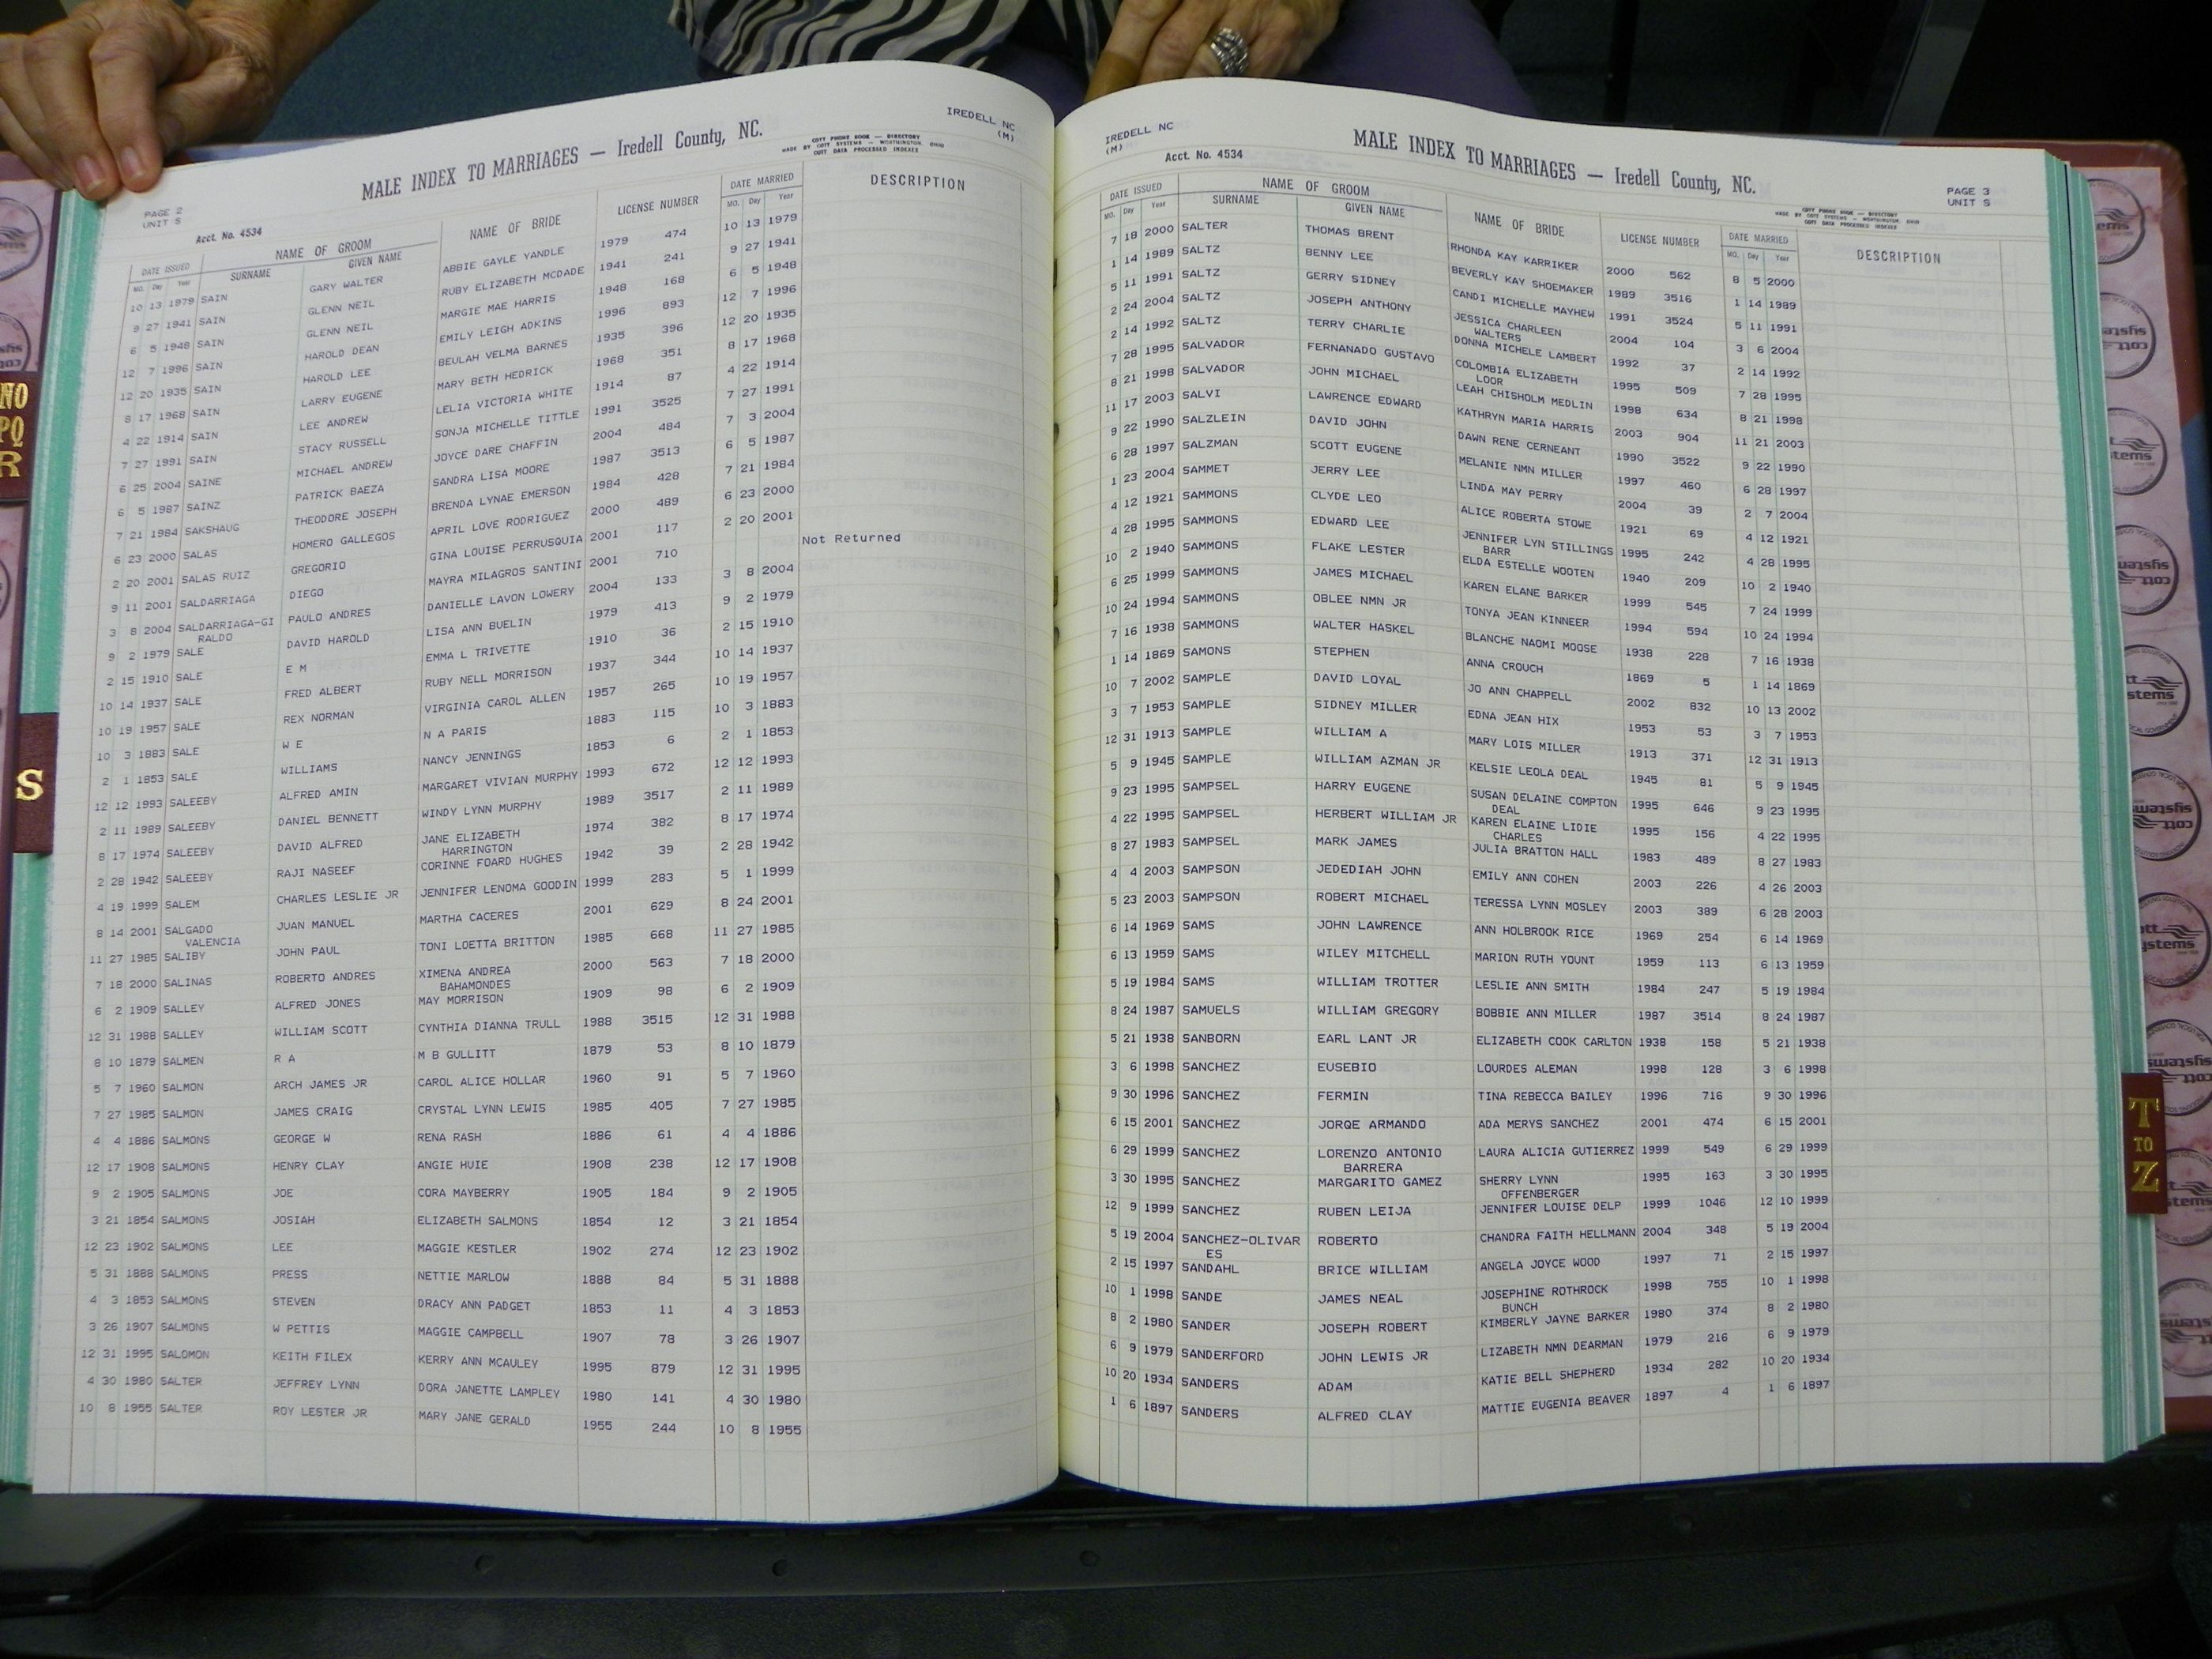 IREDELL NC
(M)
MALE INDEX TO MARRIAGES — Iredell County, NC.
COTT PHONE BOOK — DIRECTORY
MADE BY COTT SYSTEMS — WORTHINGTON, OHIO
COTT DATA PROCESSED INDEXES
PAGE 2
UNIT S
Acct. No. 4534
DATE ISSUED NAME OF GROOM NAME OF BRIDE LICENSE NUMBER DATE MARRIED DESCRIPTION
MO. Day Year SURNAME GIVEN NAME MO. Day Year
10 13 1979 SAIN GARY WALTER ABBIE GAYLE YANDLE 1979 474 10 13 1979
9 27 1941 SAIN GLENN NEIL RUBY ELIZABETH MCDADE 1941 241 9 27 1941
6 5 1948 SAIN GLENN NEIL MARGIE MAE HARRIS 1948 168 6 5 1948
12 7 1996 SAIN HAROLD DEAN EMILY LEIGH ADKINS 1996 893 12 7 1996
12 20 1935 SAIN HAROLD LEE BEULAH VELMA BARNES 1935 396 12 20 1935
8 17 1968 SAIN LARRY EUGENE MARY BETH HEDRICK 1968 351 8 17 1968
4 22 1914 SAIN LEE ANDREW LELIA VICTORIA WHITE 1914 87 4 22 1914
7 27 1991 SAIN STACY RUSSELL SONJA MICHELLE TITTLE 1991 3525 7 27 1991
6 25 2004 SAINE MICHAEL ANDREW JOYCE DARE CHAFFIN 2004 484 7 3 2004
6 5 1987 SAINZ PATRICK BAEZA SANDRA LISA MOORE 1987 3513 6 5 1987
7 21 1984 SAKSHAUG THEODORE JOSEPH BRENDA LYNAE EMERSON 1984 428 7 21 1984
6 23 2000 SALAS HOMERO GALLEGOS APRIL LOVE RODRIGUEZ 2000 489 6 23 2000
2 20 2001 SALAS RUIZ GREGORIO GINA LOUISE PERRUSQUIA 2001 117 2 20 2001
9 11 2001 SALDARRIAGA DIEGO MAYRA MILAGROS SANTINI 2001 710 Not Returned
3 8 2004 SALDARRIAGA-GI PAULO ANDRES DANIELLE LAVON LOWERY 2004 133 3 8 2004
RALDO
9 2 1979 SALE DAVID HAROLD LISA ANN BUELIN 1979 413 9 2 1979
2 15 1910 SALE E M EMMA L TRIVETTE 1910 36 2 15 1910
10 14 1937 SALE FRED ALBERT RUBY NELL MORRISON 1937 344 10 14 1937
10 19 1957 SALE REX NORMAN VIRGINIA CAROL ALLEN 1957 265 10 19 1957
10 3 1883 SALE W E N A PARIS 1883 115 10 3 1883
2 1 1853 SALE WILLIAMS NANCY JENNINGS 1853 6 2 1 1853
12 12 1993 SALEEBY ALFRED AMIN MARGARET VIVIAN MURPHY 1993 672 12 12 1993
2 11 1989 SALEEBY DANIEL BENNETT WINDY LYNN MURPHY 1989 3517 2 11 1989
8 17 1974 SALEEBY DAVID ALFRED JANE ELIZABETH 1974 382 8 17 1974
HARRINGTON
2 28 1942 SALEEBY RAJI NASEEF CORINNE FOARD HUGHES 1942 39 2 28 1942
4 19 1999 SALEM CHARLES LESLIE JR JENNIFER LENOMA GOODIN 1999 283 5 1 1999
8 14 2001 SALGADO JUAN MANUEL MARTHA CACERES 2001 629 8 24 2001
VALENCIA
11 27 1985 SALIBY JOHN PAUL TONI LOETTA BRITTON 1985 668 11 27 1985
7 18 2000 SALINAS ROBERTO ANDRES XIMENA ANDREA 2000 563 7 18 2000
BAHAMONDES
6 2 1909 SALLEY ALFRED JONES MAY MORRISON 1909 98 6 2 1909
12 31 1988 SALLEY WILLIAM SCOTT CYNTHIA DIANNA TRULL 1988 3515 12 31 1988
8 10 1879 SALMEN R A M B GULLITT 1879 53 8 10 1879
5 7 1960 SALMON ARCH JAMES JR CAROL ALICE HOLLAR 1960 91 5 7 1960
7 27 1985 SALMON JAMES CRAIG CRYSTAL LYNN LEWIS 1985 405 7 27 1985
4 4 1886 SALMONS GEORGE W RENA RASH 1886 61 4 4 1886
12 17 1908 SALMONS HENRY CLAY ANGIE HUIE 1908 238 12 17 1908
9 2 1905 SALMONS JOE CORA MAYBERRY 1905 184 9 2 1905
3 21 1854 SALMONS JOSIAH ELIZABETH SALMONS 1854 12 3 21 1854
12 23 1902 SALMONS LEE MAGGIE KESTLER 1902 274 12 23 1902
5 31 1888 SALMONS PRESS NETTIE MARLOW 1888 84 5 31 1888
4 3 1853 SALMONS STEVEN DRACY ANN PADGET 1853 11 4 3 1853
3 26 1907 SALMONS W PETTIS MAGGIE CAMPBELL 1907 78 3 26 1907
12 31 1995 SALOMON KEITH FILEX KERRY ANN MCAULEY 1995 879 12 31 1995
4 30 1980 SALTER JEFFREY LYNN DORA JANETTE LAMPLEY 1980 141 4 30 1980
10 8 1955 SALTER ROY LESTER JR MARY JANE GERALD 1955 244 10 8 1955
IREDELL NC
(M)
Acct. No. 4534
MALE INDEX TO MARRIAGES — Iredell County, NC.
COTT PHONE BOOK — DIRECTORY
MADE BY COTT SYSTEMS — WORTHINGTON, OHIO
COTT DATA PROCESSED INDEXES
PAGE 3
UNIT S
DATE ISSUED NAME OF GROOM NAME OF BRIDE LICENSE NUMBER DATE MARRIED DESCRIPTION
MO. Day Year SURNAME GIVEN NAME MO. Day Year
7 18 2000 SALTER THOMAS BRENT RHONDA KAY KARRIKER 2000 562 8 5 2000
1 14 1989 SALTZ BENNY LEE BEVERLY KAY SHOEMAKER 1989 3516 1 14 1989
5 11 1991 SALTZ GERRY SIDNEY CANDI MICHELLE MAYHEW 1991 3524 5 11 1991
2 24 2004 SALTZ JOSEPH ANTHONY JESSICA CHARLEEN 2004 104 3 6 2004
WALTERS
2 14 1992 SALTZ TERRY CHARLIE DONNA MICHELE LAMBERT 1992 37 2 14 1992
7 28 1995 SALVADOR FERNANADO GUSTAVO COLOMBIA ELIZABETH 1995 509 7 28 1995
LOOR
8 21 1998 SALVADOR JOHN MICHAEL LEAH CHISHOLM MEDLIN 1998 634 8 21 1998
11 17 2003 SALVI LAWRENCE EDWARD KATHRYN MARIA HARRIS 2003 904 11 21 2003
9 22 1990 SALZLEIN DAVID JOHN DAWN RENE CERNEANT 1990 3522 9 22 1990
6 28 1997 SALZMAN SCOTT EUGENE MELANIE NMN MILLER 1997 460 6 28 1997
1 23 2004 SAMMET JERRY LEE LINDA MAY PERRY 2004 39 2 7 2004
4 12 1921 SAMMONS CLYDE LEO ALICE ROBERTA STOWE 1921 69 4 12 1921
4 28 1995 SAMMONS EDWARD LEE JENNIFER LYN STILLINGS 1995 242 4 28 1995
BARR
10 2 1940 SAMMONS FLAKE LESTER ELDA ESTELLE WOOTEN 1940 209 10 2 1940
6 25 1999 SAMMONS JAMES MICHAEL KAREN ELANE BARKER 1999 545 7 24 1999
10 24 1994 SAMMONS OBLEE NMN JR TONYA JEAN KINNEER 1994 594 10 24 1994
7 16 1938 SAMMONS WALTER HASKEL BLANCHE NAOMI MOOSE 1938 228 7 16 1938
1 14 1869 SAMONS STEPHEN ANNA CROUCH 1869 5 1 14 1869
10 7 2002 SAMPLE DAVID LOYAL JO ANN CHAPPELL 2002 832 10 13 2002
3 7 1953 SAMPLE SIDNEY MILLER EDNA JEAN HIX 1953 53 3 7 1953
12 31 1913 SAMPLE WILLIAM A MARY LOIS MILLER 1913 371 12 31 1913
5 9 1945 SAMPLE WILLIAM AZMAN JR KELSIE LEOLA DEAL 1945 81 5 9 1945
9 23 1995 SAMPSEL HARRY EUGENE SUSAN DELAINE COMPTON 1995 646 9 23 1995
DEAL
4 22 1995 SAMPSEL HERBERT WILLIAM JR KAREN ELAINE LIDIE 1995 156 4 22 1995
CHARLES
8 27 1983 SAMPSEL MARK JAMES JULIA BRATTON HALL 1983 489 8 27 1983
4 4 2003 SAMPSON JEDEDIAH JOHN EMILY ANN COHEN 2003 226 4 26 2003
5 23 2003 SAMPSON ROBERT MICHAEL TERESSA LYNN MOSLEY 2003 389 6 28 2003
6 14 1969 SAMS JOHN LAWRENCE ANN HOLBROOK RICE 1969 254 6 14 1969
6 13 1959 SAMS WILEY MITCHELL MARION RUTH YOUNT 1959 113 6 13 1959
5 19 1984 SAMS WILLIAM TROTTER LESLIE ANN SMITH 1984 247 5 19 1984
8 24 1987 SAMUELS WILLIAM GREGORY BOBBIE ANN MILLER 1987 3514 8 24 1987
5 21 1938 SANBORN EARL LANT JR ELIZABETH COOK CARLTON 1938 158 5 21 1938
3 6 1998 SANCHEZ EUSEBIO LOURDES ALEMAN 1998 128 3 6 1998
9 30 1996 SANCHEZ FERMIN TINA REBECCA BAILEY 1996 716 9 30 1996
6 15 2001 SANCHEZ JORGE ARMANDO ADA MERYS SANCHEZ 2001 474 6 15 2001
6 29 1999 SANCHEZ LORENZO ANTONIO LAURA ALICIA GUTIERREZ 1999 549 6 29 1999
BARRERA
3 30 1995 SANCHEZ MARGARITO GAMEZ SHERRY LYNN 1995 163 3 30 1995
OFFENBERGER
12 9 1999 SANCHEZ RUBEN LEIJA JENNIFER LOUISE DELP 1999 1046 12 10 1999
5 19 2004 SANCHEZ-OLIVAR ROBERTO CHANDRA FAITH HELLMANN 2004 348 5 19 2004
ES
2 15 1997 SANDAHL BRICE WILLIAM ANGELA JOYCE WOOD 1997 71 2 15 1997
10 1 1998 SANDE JAMES NEAL JOSEPHINE ROTHROCK 1998 755 10 1 1998
BUNCH
8 2 1980 SANDER JOSEPH ROBERT KIMBERLY JAYNE BARKER 1980 374 8 2 1980
6 9 1979 SANDERFORD JOHN LEWIS JR LIZABETH NMN DEARMAN 1979 216 6 9 1979
10 20 1934 SANDERS ADAM KATIE BELL SHEPHERD 1934 282 10 20 1934
1 6 1897 SANDERS ALFRED CLAY MATTIE EUGENIA BEAVER 1897 4 1 6 1897
NO
PQ
R
S
T
TO
Z